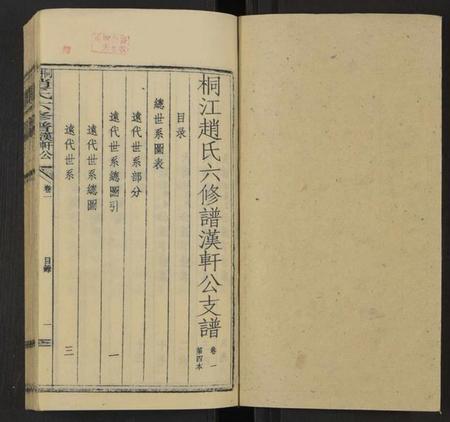 桐江趙氏六修譜漢軒公支譜 卷一 第四本
目录
總世系圖表
遠代世系部分
遠代世系總圖引 一
遠代世系總圖
遠代世系 三
桐江趙氏六修譜漢軒公 卷一 目錄 一